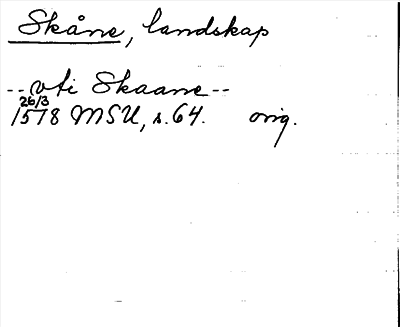 Skåne, landskap
-- vti Skaane --
26/3
1578 MSU, s. 64. orig.